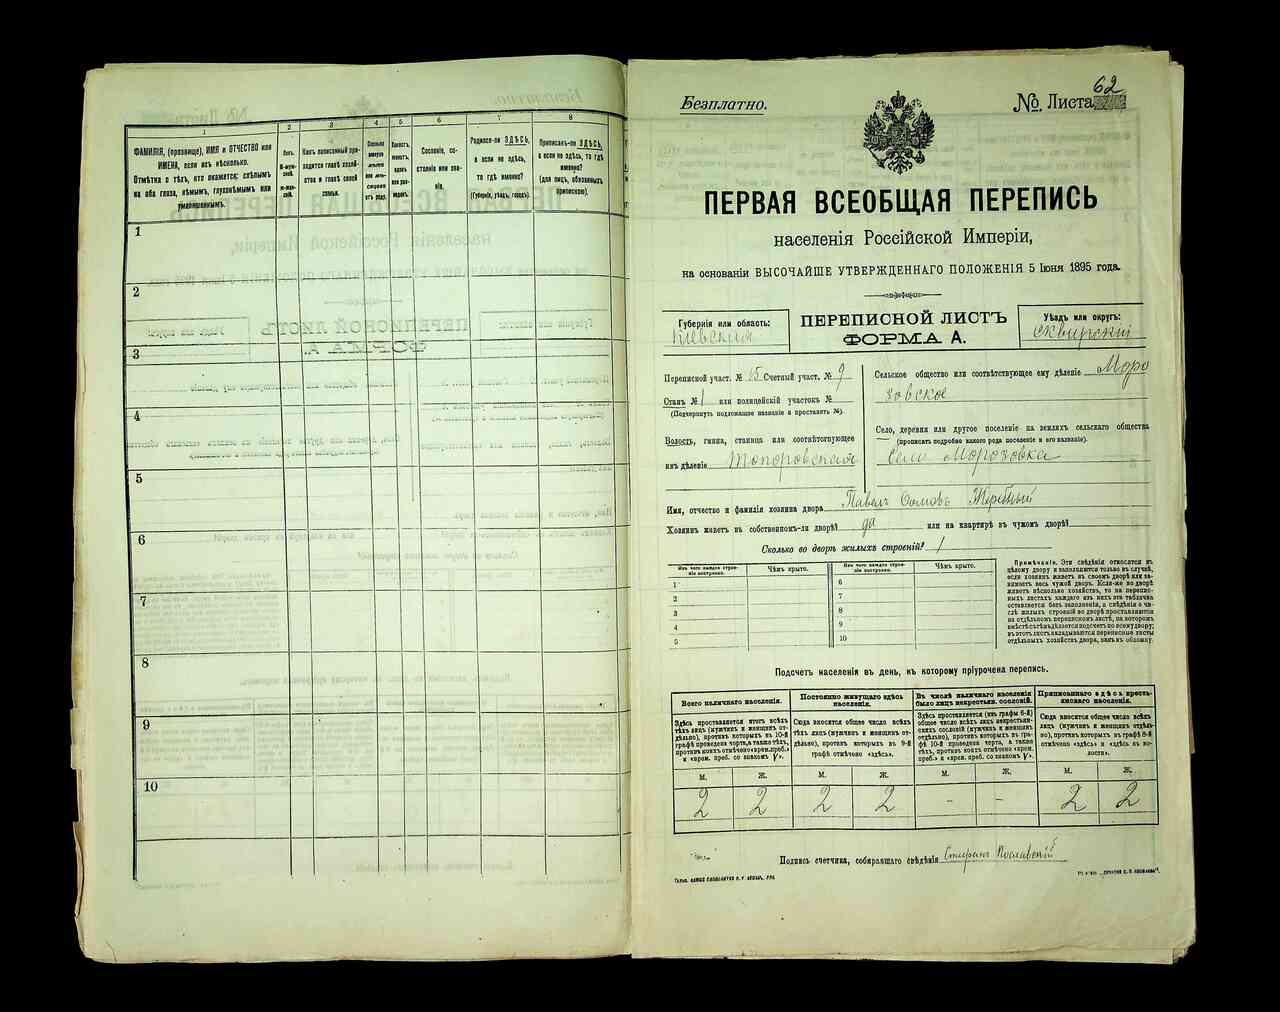 1
2
3
4
5
6
7
8
ФАМИЛІЯ, (прозвище), ИМЯ и ОТЧЕСТВО или
ИМЕНА, если ихъ нѣсколько.
Отмѣтка о тѣхъ, кто окажется: слѣпымъ
на оба глаза, нѣмымъ, глухонѣмымъ или
умалишеннымъ.
Полъ.
М-муж-
ской.
Ж-жен-
скій.
Какъ записанный при-
ходится главѣ хозяй-
ства и главѣ своей
семьи.
Сколько
минуло
лѣтъ
или мѣ-
сяцевъ
отъ роду.
Холостъ,
женатъ,
вдовъ
или раз-
веденъ.
Сословіе, со-
стояніе или зва-
ніе.
Родился-ли ЗДѢСЬ,
а если не здѣсь,
то гдѣ именно?
(Губернія, уѣздъ, городъ).
Приписанъ-ли ЗДѢСЬ,
а если не здѣсь, то гдѣ
именно?
(для лицъ, обязанныхъ
припискою).
1
2
3
4
5
6
7
8
9
10
Безплатно.
№ Листа 62
ПЕРВАЯ ВСЕОБЩАЯ ПЕРЕПИСЬ
населенія Россійской Имперіи,
на основаніи ВЫСОЧАЙШЕ УТВЕРЖДЕННАГО ПОЛОЖЕНІЯ 5 Іюня 1895 года.
Губернія или область:
Кіевская
ПЕРЕПИСНОЙ ЛИСТЪ
ФОРМА А.
Уѣздъ или округъ:
Сквирскій
Переписной участ. № 15 Счетный участ. № 9
Станъ № 1 или полицейскій участокъ №
(Подчеркнуть подлежащее названіе и проставить №).
Волость, гмина, станица или соотвѣтствующее
имъ дѣленіе Топоровская
Сельское общество или соотвѣтствующее ему дѣленіе Моро
зовское
Село, деревня или другое поселеніе на земляхъ сельскаго общества
(прописать подробно какого рода поселеніе и его названіе).
Село Морозовка
Имя, отчество и фамилія хозяина двора Павелъ Сомовъ Жеребный
Хозяинъ живетъ въ собственномъ-ли дворѣ? да или на квартирѣ въ чужомъ дворѣ?
Сколько во дворѣ жилыхъ строеній? 1
Изъ чего каждое строе-
ніе построено.
Чѣмъ крыто.
1
2
3
4
5
Изъ чего каждое строе-
ніе построено.
Чѣмъ крыто.
6
7
8
9
10
Примѣчаніе. Эти свѣдѣнія относятся къ
цѣлому двору и заполняются только въ случаѣ,
если хозяинъ живетъ въ своемъ дворѣ или за-
нимаетъ весь чужой дворъ. Если-же во дворѣ
живетъ нѣсколько хозяйствъ, то на перепис-
ныхъ листахъ каждаго изъ нихъ эта табличка
оставляется безъ заполненія, а свѣдѣнія о чи-
слѣ жилыхъ строеній во дворѣ проставляются
на отдѣльномъ переписномъ листѣ, на которомъ
вмѣстѣ съ тѣмъ дѣлается подсчетъ по всему двору;
въ этотъ листъ вкладываются переписные листы
отдѣльныхъ хозяйствъ двора, какъ въ обложку.
Подсчетъ населенія въ день, къ которому пріурочена перепись.
Всего наличнаго населенія.
Здѣсь проставляется итогъ всѣхъ
тѣхъ лицъ (мужчинъ и женщинъ от-
дѣльно), противъ которыхъ въ 10-й
графѣ проведена черта, а также тѣхъ,
противъ коихъ отмѣчено «врем. преб.»
и «врем. преб. со знакомъ V».
Постоянно живущаго здѣсь
населенія.
Сюда вносится общее число всѣхъ
тѣхъ лицъ (мужчинъ и женщинъ от-
дѣльно), противъ которыхъ въ 9-й
графѣ отмѣчено «здѣсь».
Въ числѣ наличнаго населенія
было лицъ некрестьян. сословій.
Здѣсь проставляется (изъ графы 6-й)
общее число всѣхъ лицъ некрестьян-
скихъ сословій (мужчинъ и женщинъ
отдѣльно), противъ которыхъ въ гра-
фѣ 10-й проведена черта, а также
тѣхъ, противъ коихъ отмѣчено «врем.
преб.» и «врем. преб. со знакомъ V».
Приписаннаго здѣсь кресть-
янскаго населенія.
Сюда вносится общее число всѣхъ
лицъ (мужчинъ и женщинъ отдѣль-
но), противъ которыхъ въ графѣ 8-й
отмѣчено «здѣсь» и «здѣсь въ во-
лости».
М. Ж. М. Ж. М. Ж. М. Ж.
2 2 2 2 - - 2 2
Подпись счетчика, собиравшаго свѣдѣнія